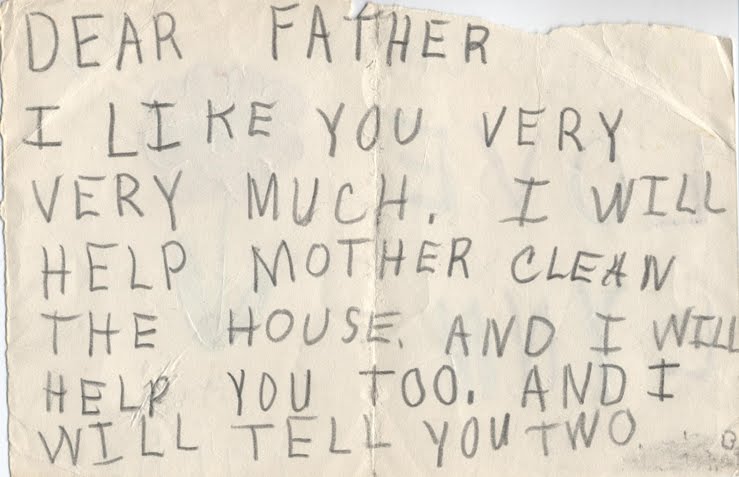 DEAR FATHER
I LIKE YOU VERY
VERY MUCH. I WILL
HELP MOTHER CLEAN
THE HOUSE. AND I WILL
HELP YOU TOO. AND I
WILL TELL YOU TWO